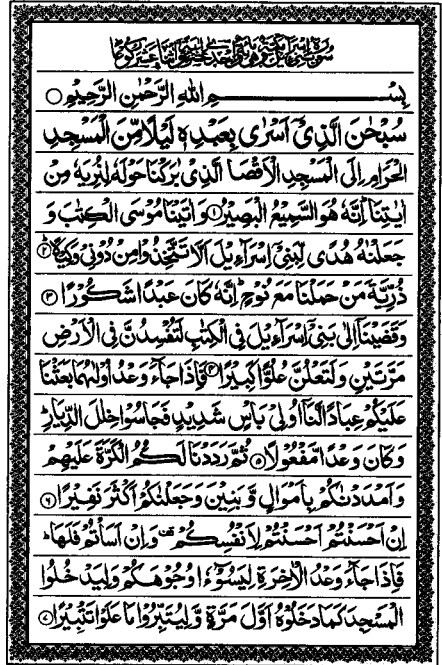 سورة بنی اسرائیل مکیة وهی مائة واحدی عشرة اٰیة واثنا عشر رکوعا
بِسْمِ اللهِ الرَّحْمٰنِ الرَّحِيْمِ ○
سُبْحٰنَ الَّذِىْٓ اَسْرٰى بِعَبْدِهٖ لَيْلًا مِّنَ الْمَسْجِدِ
الْحَرَامِ اِلَى الْمَسْجِدِ الْاَقْصَا الَّذِىْ بٰرَكْنَا حَوْلَهٗ لِنُرِيَهٗ مِنْ
اٰيٰتِنَا ؕ اِنَّهٗ هُوَ السَّمِيْعُ الْبَصِيْرُ ① وَاٰتَيْنَا مُوْسَى الْكِتٰبَ وَ
جَعَلْنٰهُ هُدًى لِّبَنِىْٓ اِسْرَآءِيْلَ اَلَّا تَتَّخِذُوْا مِنْ دُوْنِىْ وَكِيْلًا ② ؕ
ذُرِّيَّةَ مَنْ حَمَلْنَا مَعَ نُوْحٍ ؕ اِنَّهٗ كَانَ عَبْدًا شَكُوْرًا ③
وَقَضَيْنَآ اِلٰى بَنِىْٓ اِسْرَآءِيْلَ فِى الْكِتٰبِ لَتُفْسِدُنَّ فِى الْاَرْضِ
مَرَّتَيْنِ وَلَتَعْلُنَّ عُلُوًّا كَبِيْرًا ④ فَاِذَا جَآءَ وَعْدُ اُوْلٰىهُمَا بَعَثْنَا
عَلَيْكُمْ عِبَادًا لَّنَآ اُولِىْ بَاْسٍ شَدِيْدٍ فَجَاسُوْا خِلٰلَ الدِّيَارِ ؕ
وَكَانَ وَعْدًا مَّفْعُوْلًا ⑤ ثُمَّ رَدَدْنَا لَكُمُ الْكَرَّةَ عَلَيْهِمْ
وَاَمْدَدْنٰكُمْ بِاَمْوَالٍ وَّبَنِيْنَ وَجَعَلْنٰكُمْ اَكْثَرَ نَفِيْرًا ⑥
اِنْ اَحْسَنْتُمْ اَحْسَنْتُمْ لِاَنْفُسِكُمْ قف وَاِنْ اَسَاْتُمْ فَلَهَا ؕ
فَاِذَا جَآءَ وَعْدُ الْاٰخِرَةِ لِيَسُوْٓءٗا وُجُوْهَكُمْ وَلِيَدْخُلُوا
الْمَسْجِدَ كَمَا دَخَلُوْهُ اَوَّلَ مَرَّةٍ وَّلِيُتَبِّرُوْا مَا عَلَوْا تَتْبِيْرًا ⑦